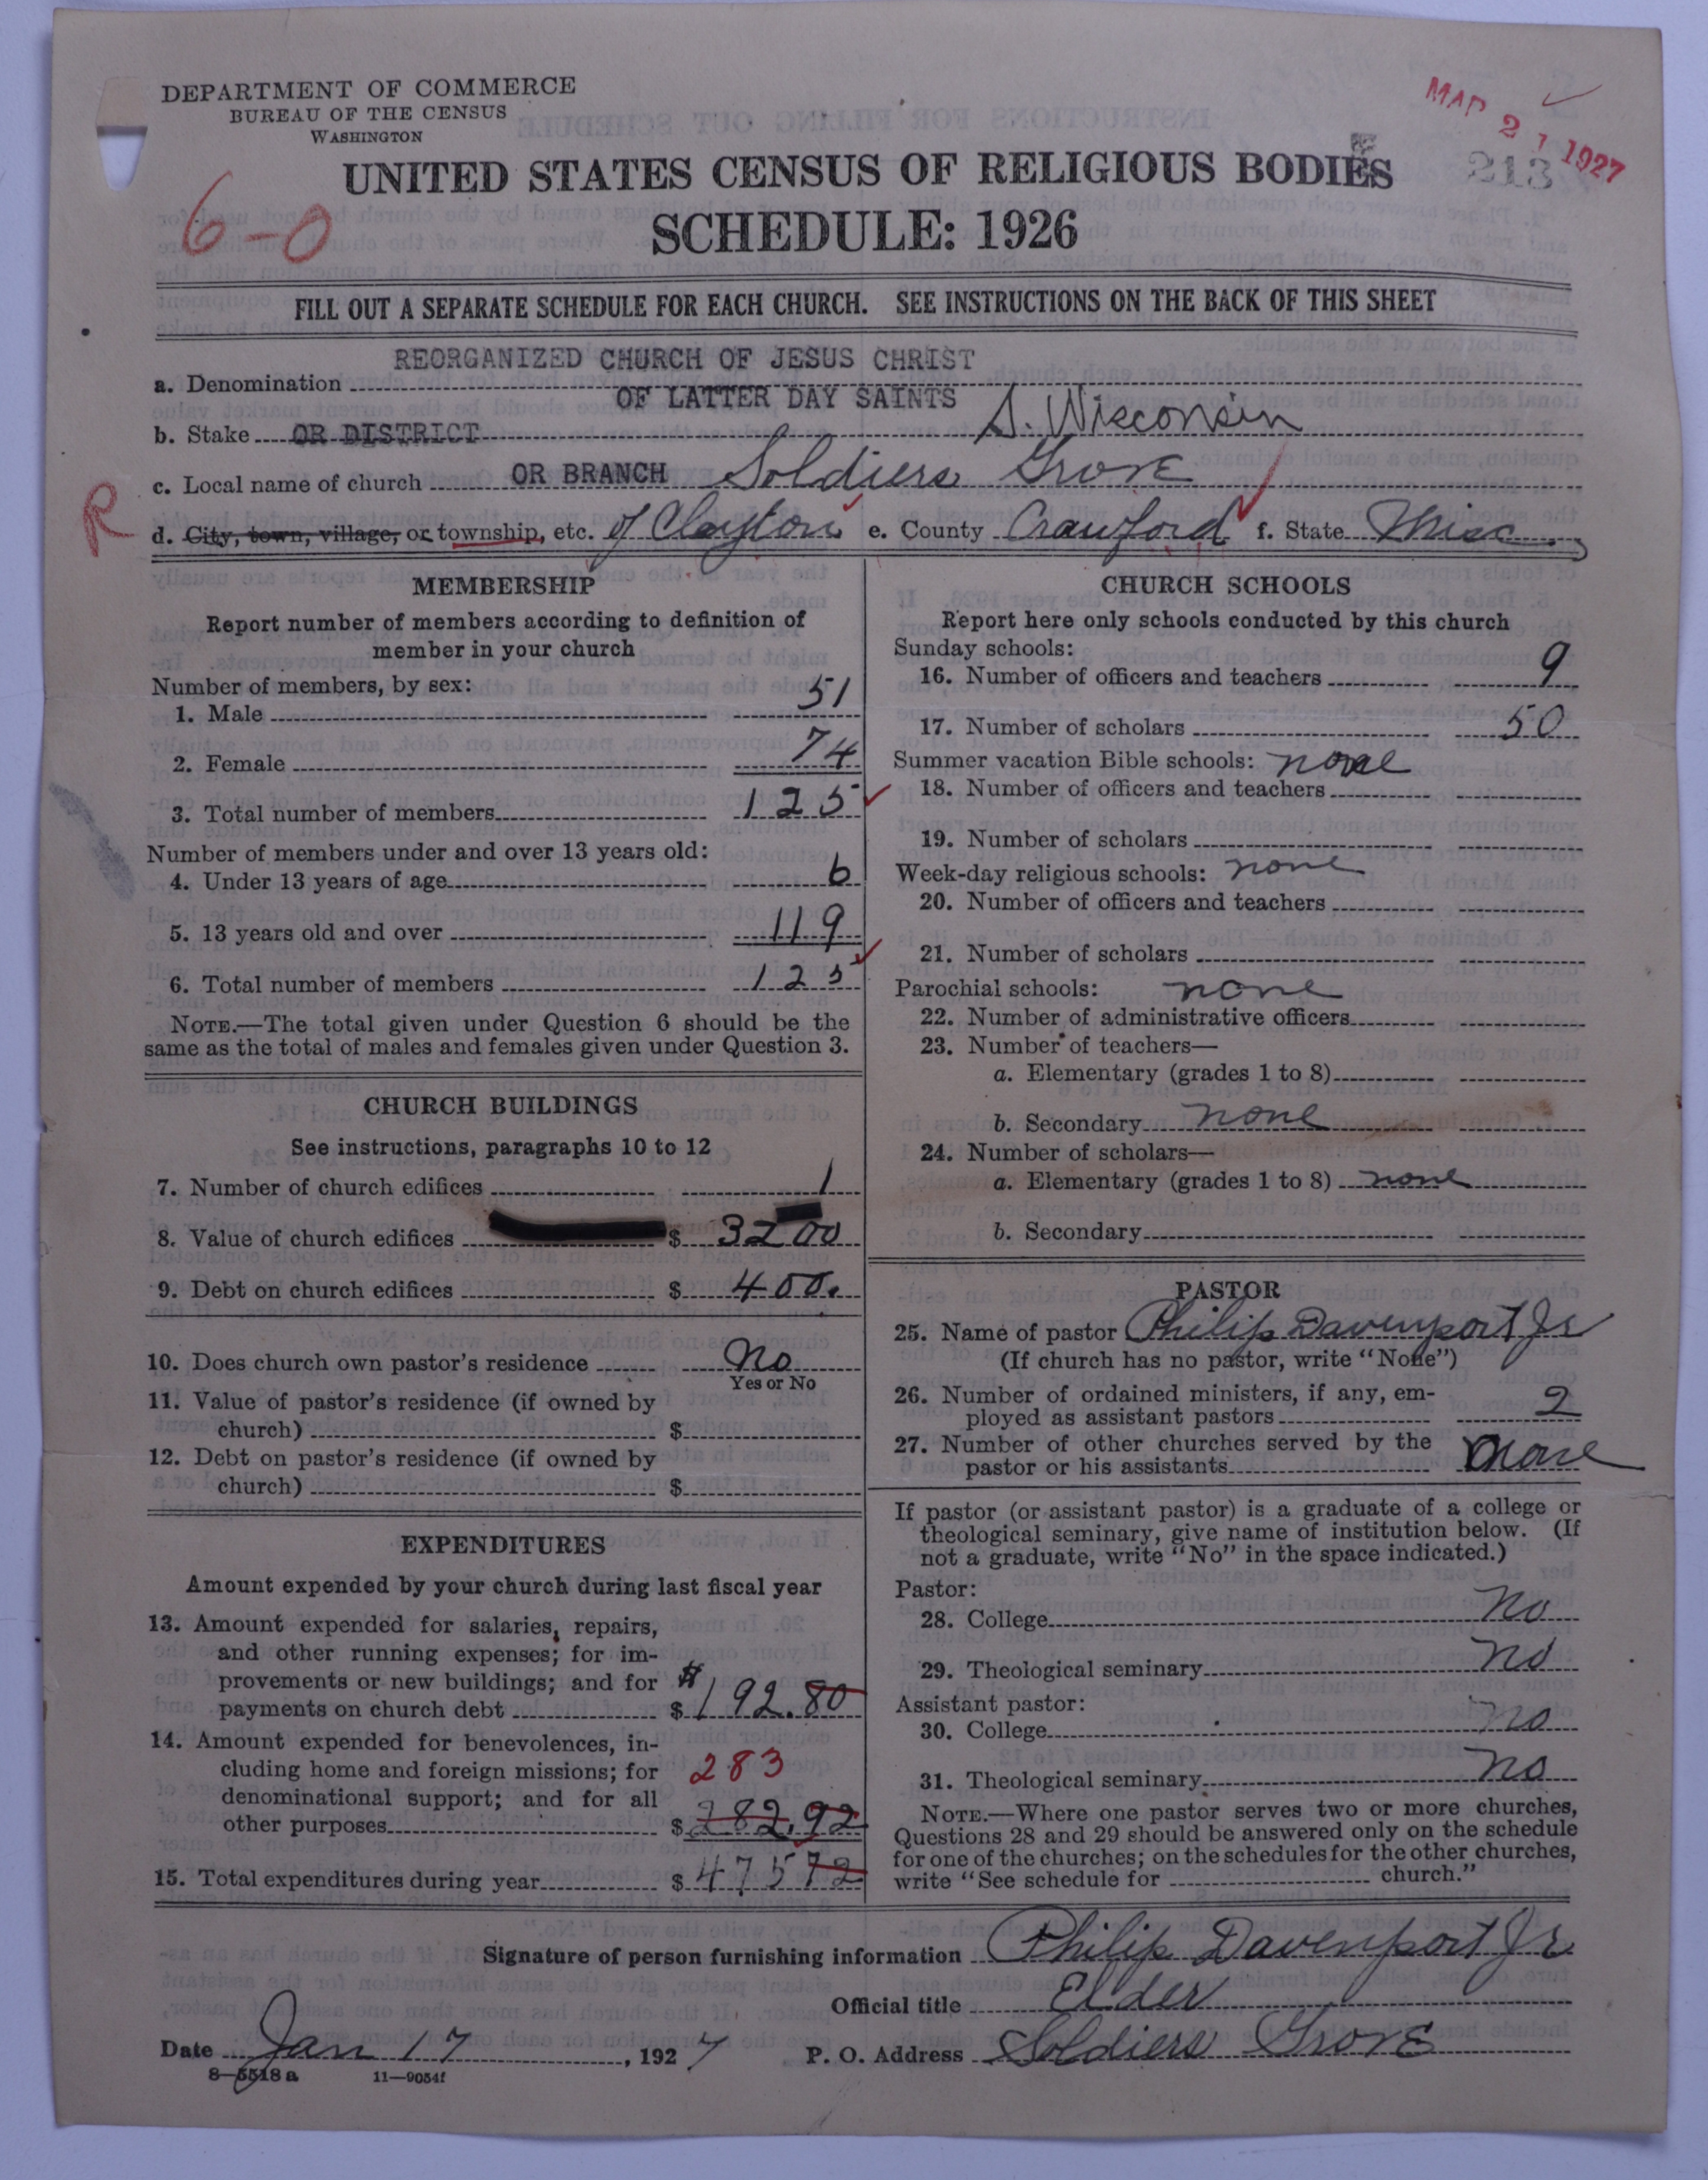 DEPARTMENT OF COMMERCE
BUREAU OF THE CENSUS
WASHINGTON
MAR 21 1927
213
UNITED STATES CENSUS OF RELIGIOUS BODIES
6-0
SCHEDULE: 1926
FILL OUT A SEPARATE SCHEDULE FOR EACH CHURCH. SEE INSTRUCTIONS ON THE BACK OF THIS SHEET
REORGANIZED CHURCH OF JESUS CHRIST
a. Denomination
OF LATTER DAY SAINTS
b. Stake OR DISTRICT S. Wisconsin
c. Local name of church OR BRANCH Soldiers Grove
R
d. City, town, village, or township, etc. of Clayton e. County Crawford f. State Wisc.
MEMBERSHIP
Report number of members according to definition of
member in your church
Number of members, by sex:
1. Male 51
2. Female 74
3. Total number of members 125
Number of members under and over 13 years old:
4. Under 13 years of age 6
5. 13 years old and over 119
6. Total number of members 125
NOTE.—The total given under Question 6 should be the
same as the total of males and females given under Question 3.
CHURCH BUILDINGS
See instructions, paragraphs 10 to 12
7. Number of church edifices 1
8. Value of church edifices $ 3200
9. Debt on church edifices $ 400.
10. Does church own pastor's residence No
Yes or No
11. Value of pastor's residence (if owned by
church) $
12. Debt on pastor's residence (if owned by
church) $
EXPENDITURES
Amount expended by your church during last fiscal year
13. Amount expended for salaries, repairs,
and other running expenses; for im-
provements or new buildings; and for $
payments on church debt $ 192.80
14. Amount expended for benevolences, in-
cluding home and foreign missions; for 283
denominational support; and for all
other purposes $ 282.92
15. Total expenditures during year $ 475 72
CHURCH SCHOOLS
Report here only schools conducted by this church
Sunday schools:
16. Number of officers and teachers 9
17. Number of scholars 50
Summer vacation Bible schools: none
18. Number of officers and teachers
19. Number of scholars
Week-day religious schools: none
20. Number of officers and teachers
21. Number of scholars
Parochial schools: none
22. Number of administrative officers
23. Number of teachers—
a. Elementary (grades 1 to 8)
b. Secondary none
24. Number of scholars—
a. Elementary (grades 1 to 8) none
b. Secondary
PASTOR
25. Name of pastor Philip Davenport Jr
(If church has no pastor, write "None")
26. Number of ordained ministers, if any, em-
ployed as assistant pastors 2
27. Number of other churches served by the
pastor or his assistants None
If pastor (or assistant pastor) is a graduate of a college or
theological seminary, give name of institution below. (If
not a graduate, write "No" in the space indicated.)
Pastor:
28. College No
29. Theological seminary No
Assistant pastor:
30. College no
31. Theological seminary no
NOTE.—Where one pastor serves two or more churches,
Questions 28 and 29 should be answered only on the schedule
for one of the churches; on the schedules for the other churches,
write "See schedule for church."
Signature of person furnishing information Philip Davenport Jr
Official title Elder
Date Jan 17, 1927 P. O. Address Soldiers Grove
8—5518 a 11—9054f